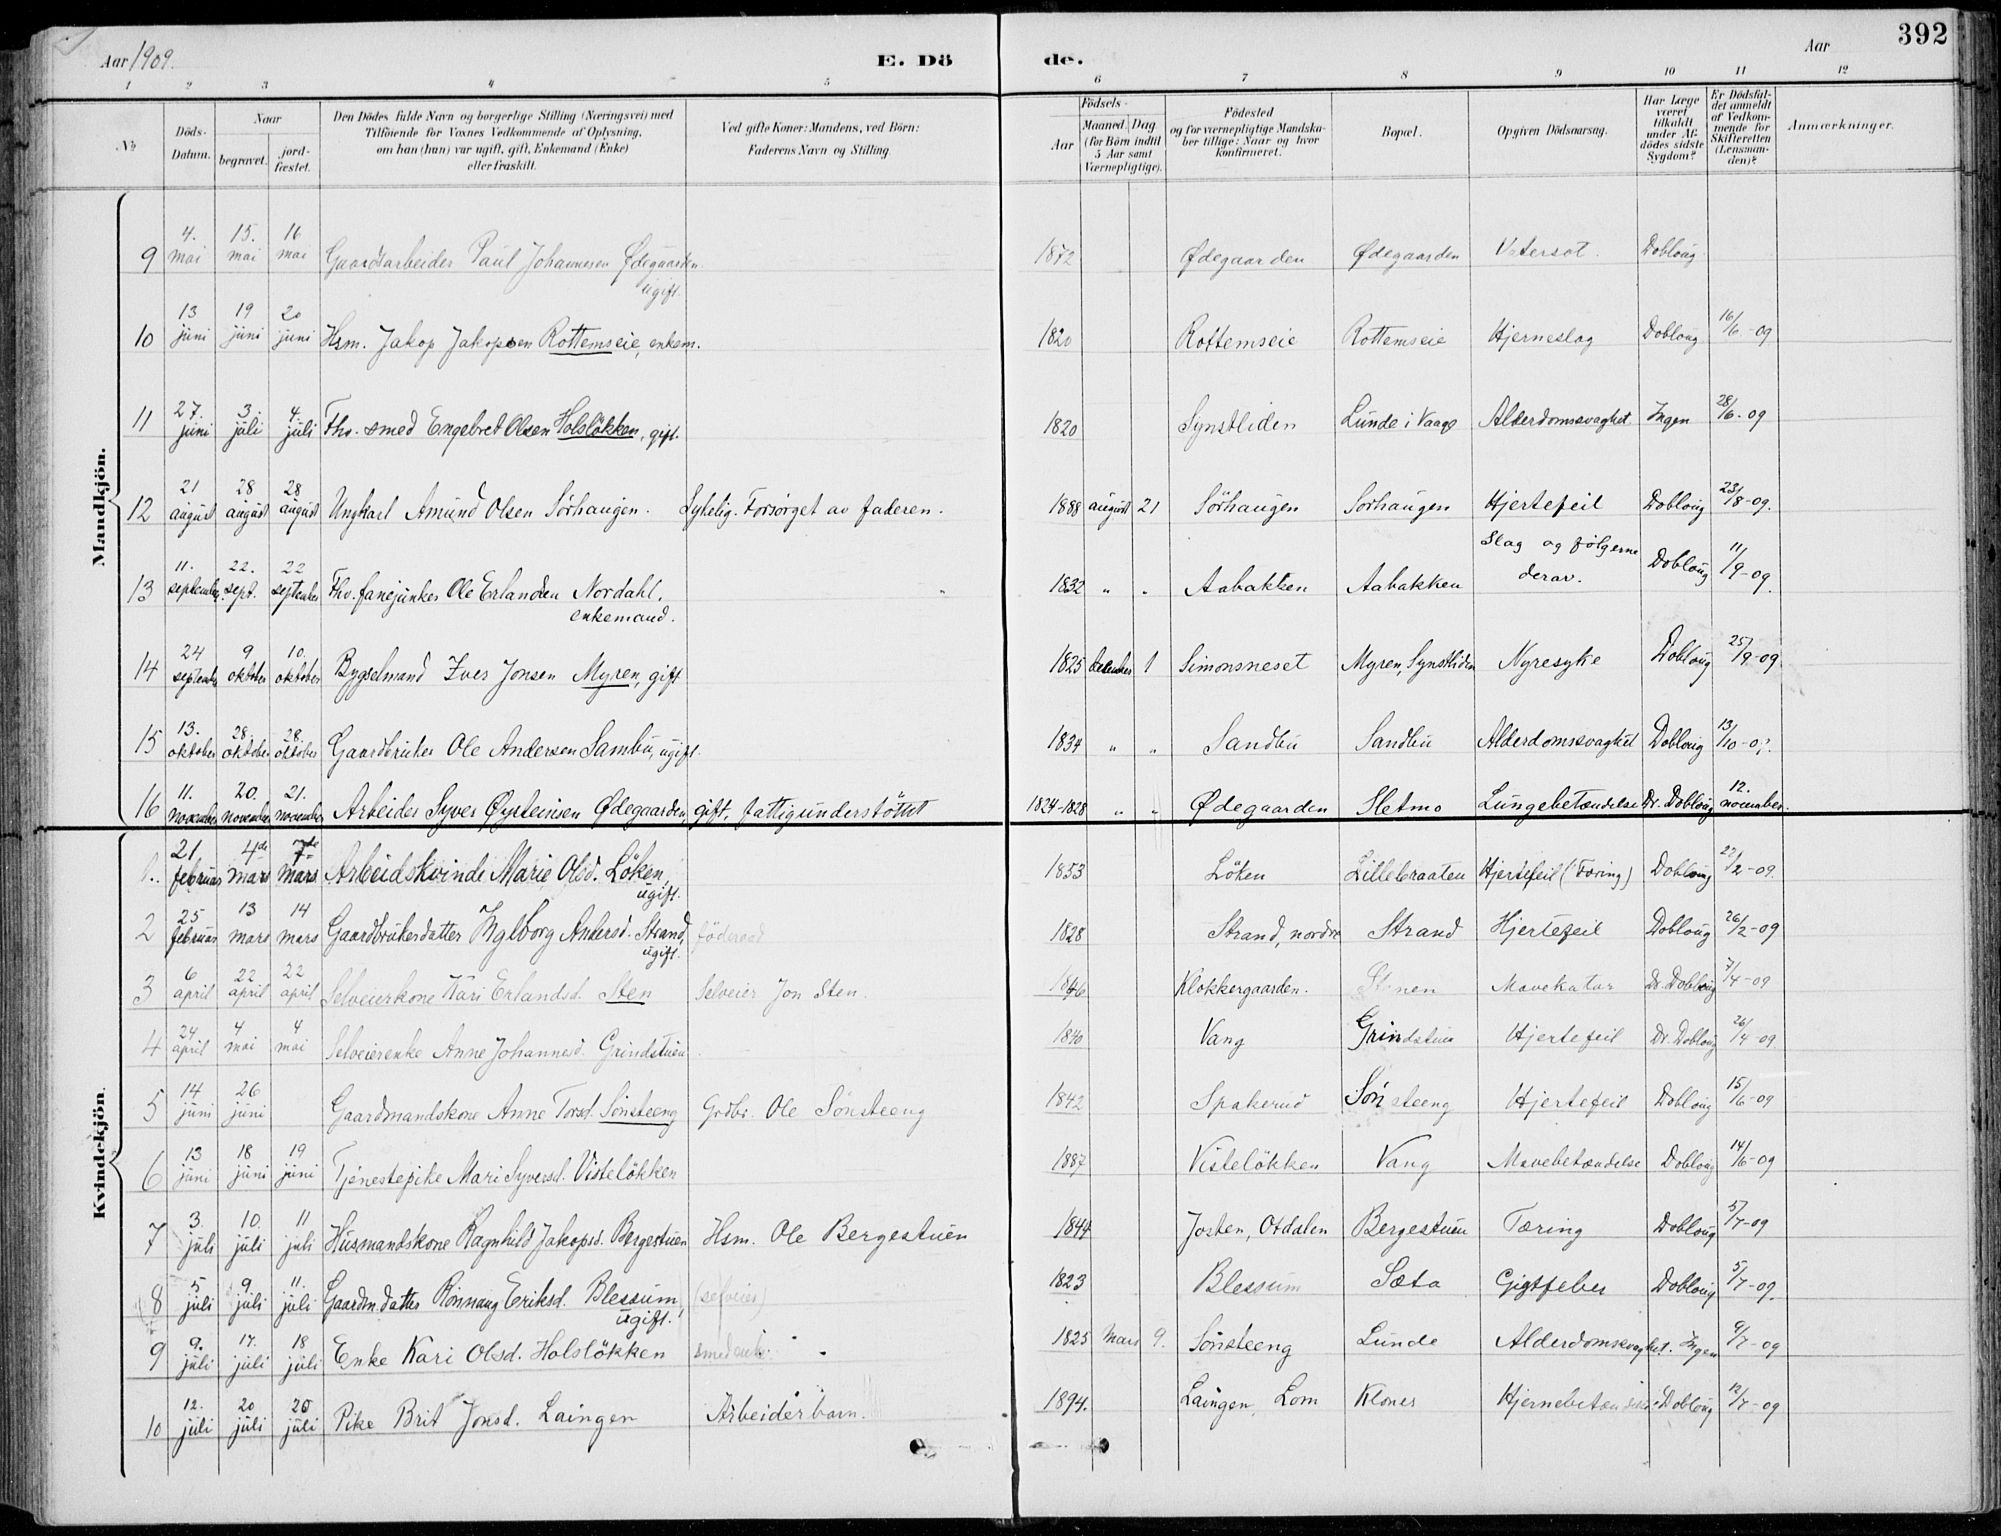 Aar 1909. E. Döde. Aar 392
1 2 3 4 5 6 7 8 9 10 11 12
№ Döds-Datum. Naar begravet. jordfæstet. Den Dödes fulde Navn og borgerlige Stilling (Næringsvei) med Tilföiende for Voxnes Vedkommende af Oplysning, om han (hun) var ugift, gift, Enkemand (Enke) eller fraskilt. Ved gifte Koner: Mandens, ved Börn: Faderens Navn og Stilling. Födsels- Aar Maaned. Dag (for Börn indtil 5 Aar samt Værnepligtige). Födested og for værnepligtige Mandskaber tillige: Naar og hvor konfirmeret. Bopæl. Opgiven Dödsaarsag. Har Læge været tilkaldt under Afdödes sidste Sygdom? Er Dödsfaldet anmeldt af Vedkommende for Skifteretten (Lensmanden)? Anmærkninger.
Mandkjön.
9 4. mai 15. mai 16 mai Gaardsarbeider Paul Johannesen Ødegaarden ugift. 1872 Ødegaarden Ødegaarden Vatersot. Dobloug
10 13 juni 19 juni 20 juni Hsm. Jakop Jakopsen Rottemseie, enkem. 1820 Rottemseie Rottemseie Hjerneslag Dobloug 16/6-09
11 27. juni 3. juli 4. juli Fhv. smed Engebret Olsen Holslökken, gift. 1820 Synstliden Lunde i Vaage Alderdomssvaghet Ingen 28/6-09
12 21 august 28 august 28 august Ungkarl Amund Olsen Sörhaugen. Sykelig. Forsörget av faderen. 1888 august 21 Sörhaugen Sorhaugen Hjertefeil Dobloug 23/8-09.
13 11. september. 22. sept. 22 september Fhv. fanejunker Ole Erlandsen Nordahl. enkemand. " 1832 " " Aabakken Aabakken Slag og fölgerne derav. Dobloug 11/9-09.
14 24 september 9 oktober 10. oktober Bygselmand Iver Jonsen Myren, gift 1825 december 1 Simonsneset Myren, Synstliden Nyresyke Dobloug 25/9-09
15 13. oktober 28. oktober 28. oktober Gaardbruker Ole Andersen Sambu, ugift. 1834 " " Sandbu Sandbu Alderdomssvaghet Dobloug 13/10-09.
16 11. november 20. november 21. november Arbeider Syver Øysteinsen Ødegaarden, gift, fattigunderstöttet 1824-1828 " " Ødegaarden Sletmo Lungebetændelse Dr. Dobloug 12. november.
Kvindekjön.
1. 21 februar 4de mars 7de mars Arbeidskvinde Marie Olsd. Löken, ugift. 1853 Löken Lillebraaten Hjertefeil (Tæring) Doblong 22/2-09.
2 25 februar 13 mars 14 mars Gaardbrukerdatter Ingeborg Andersd. Strand, ugift. föderaad 1828 Strand, nordre Strand Hjertefeil Doblong 26/2-09
3 6 april 22 april 22 april Selveierkone Kari Erlandsd. Sten Selveier Jon Sten. 1846 Klokkergaarden. Stenen Mavekatar Dr. Doblong 7/4-09
4 24 april 4 mai 4 mai Selveierenke Anne Johannesd. Grindstuen 1840 Vang Grindstuen Hjertefeil Dr. Doblong 26/4-09
5 14 juni 26 juni Gaardmandskone Anne Torsd. Sönsteeng Grdbr. Ole Sönsteeng 1842 Spakerud Sönsteeng Hjertefeil Doblong 15/6-09
6 13 juni 18 juni 19 juni Tjenestepike Mari Syversd. Visteløkken 1887 Vistelökken Vang Mavebetændelse Doblong 14/6-09
7 3. juli 10. juli 11 juli Husmandskone Ragnhild Jakopsd. Bergestuen Hsm. Ole Bergestuen 1844 Josten, Otdalen Bergestuen Tæring Doblong 5/7-09
8 5. juli 9. juli 11. juli Gaardm.datter Rönnaug Eriksd. Blessum, ugift. (selveier) 1823 Blessum Sæta Gigtfeber Doblong 5/7-09.
9 9. juli 17. juli 18 juli Enke Kari Olsd. Holslökken smedenke. 1825 Mars 9. Sönsteeng Lunde Alderdomssvaghet. Ingen 9/7-09
10 12. juli 20 juli 20 juli Pike Brit Jonsd. Laingen Arbeiderbarn. 1894. Laingen, Lom Klones Hjernebetændelse Doblong 12/7-09